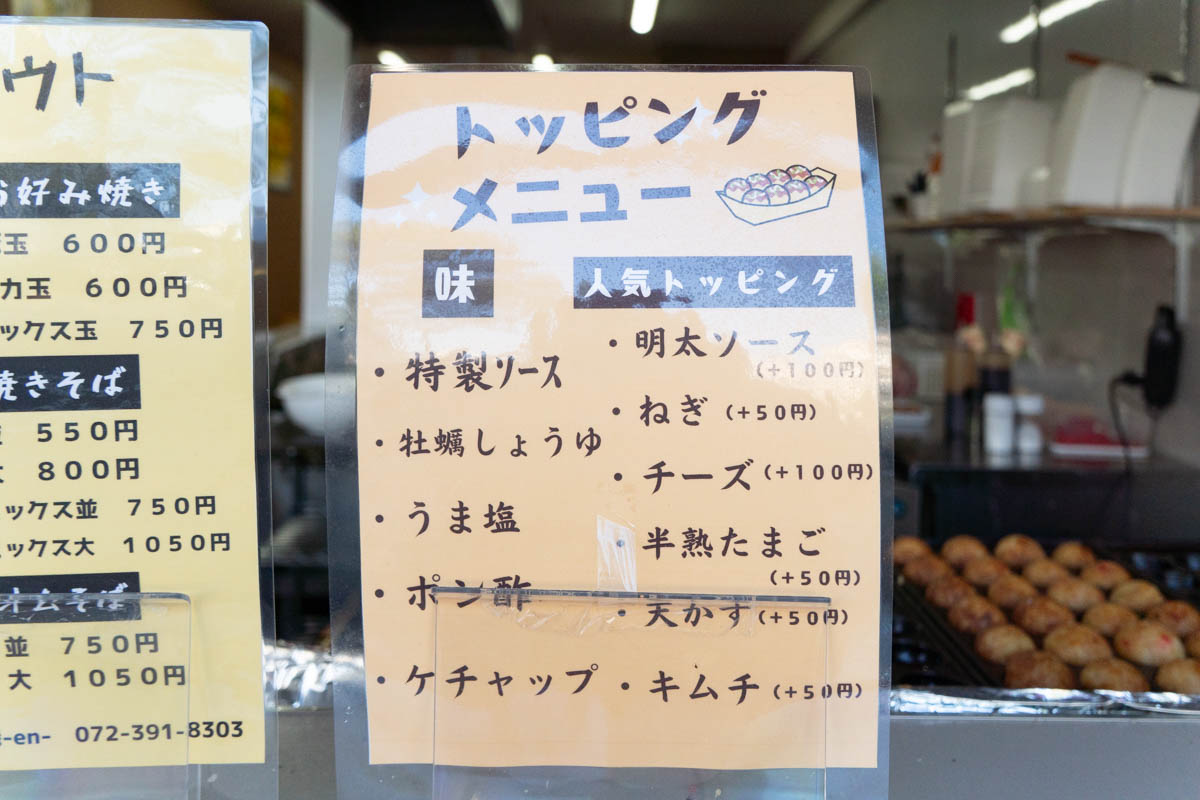 ウト
お好み焼き
玉 600円
カ玉 600円
ックス玉 750円
焼きそば
550円
800円
ックス並 750円
ミックス大 1050円
オムそば
並 750円
大 1050円
-en- 072-391-8303
トッピング
メニュー
味
・特製ソース
・牡蠣しょうゆ
・うま塩
・ポン酢
・ケチャップ
人気トッピング
・明太ソース
(+100円)
・ねぎ (+50円)
・チーズ (+100円)
・半熟たまご
(+50円)
・天かす (+50円)
・キムチ (+50円)